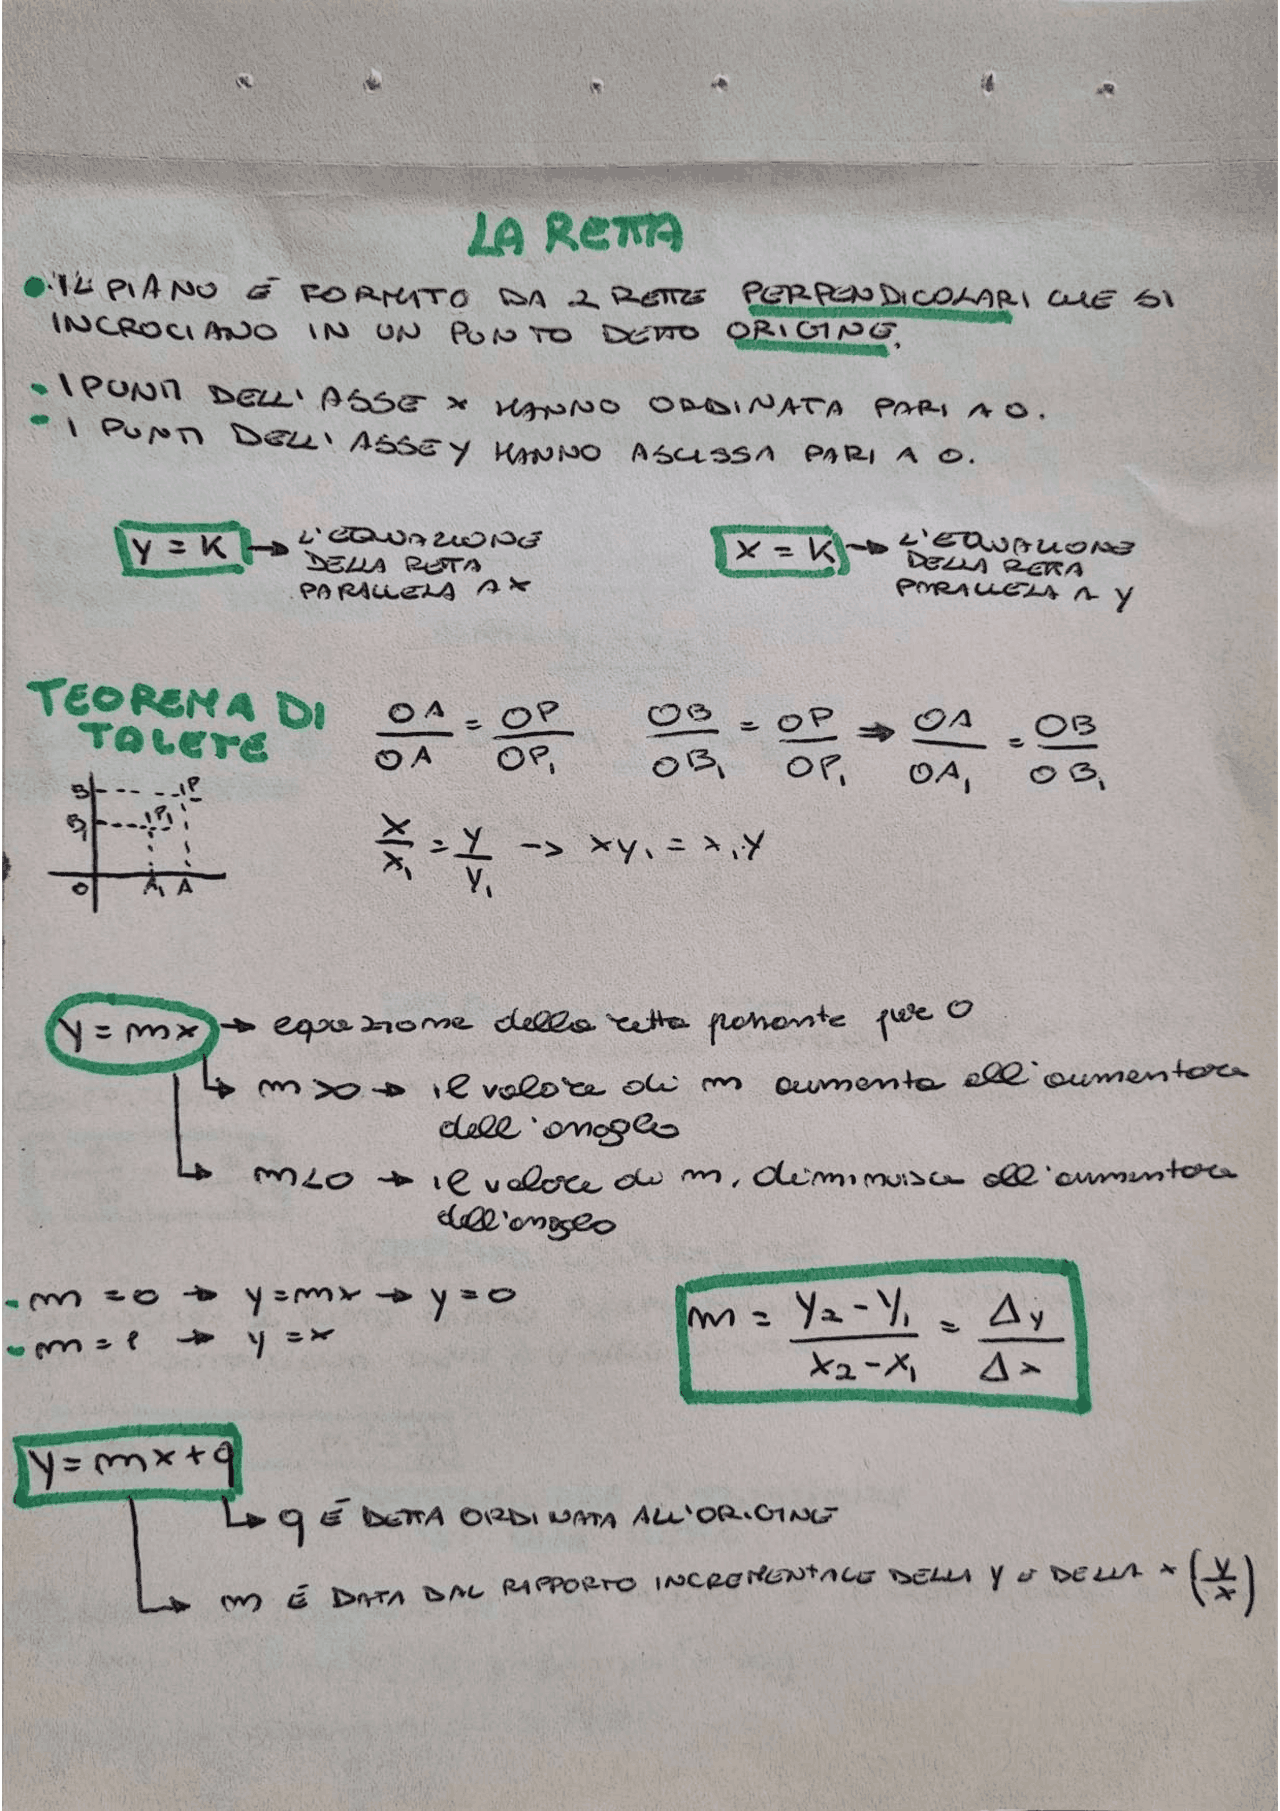 LA RETTA
• IL PIANO È FORMATO DA 2 RETTE PERPENDICOLARI CHE SI
INCROCIANO IN UN PUNTO DETTO ORIGINE.
- I PUNTI DELL'ASSE X HANNO ORDINATA PARI A 0.
- I PUNTI DELL'ASSE Y HANNO ASCISSA PARI A 0.
y = K → L'EQUAZIONE
DELLA RETTA
PARALLELA A X
X = K → L'EQUAZIONE
DELLA RETTA
PARALLELA A Y
TEOREMA DI
TALETE
OA/OA = OP/OP₁ OB/OB₁ = OP/OP₁ ⇒ OA/OA₁ = OB/OB₁
B P
B₁ P₁
O A₁ A
x/x₁ = y/y₁ -> xy₁ = x₁y
y = mx → equazione della retta passante per O
m>0 → il valore di m aumenta all'aumentare
dell'angolo
m<0 → il valore di m, diminuisce all'aumentare
dell'angolo
- m = 0 → y=mx → y=0
- m = 1 → y=x
m = y₂-y₁/x₂-x₁ = Δy/Δx
y = mx+q
q È DETTA ORDINATA ALL'ORIGINE
m È DATA DAL RAPPORTO INCREMENTALE DELLA y E DELLA x (y/x)